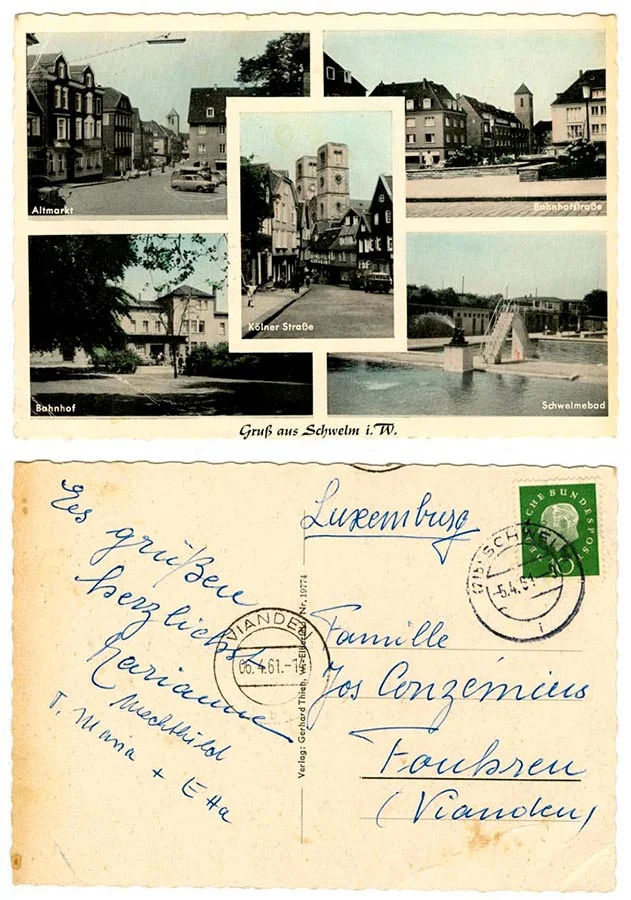 Altmarkt
Bahnhofstraße
Kölner Straße
Bahnhof
Schwelmebad
Gruß aus Schwelm i. W.
Es grüßen
herzlichst
Marianne
Mechthild
T. Maria + Etta
Luxemburg
Familie
Jos Conzémius
Fouhren
(Vianden)
VIANDEN
06.4.61.-1
SCHWELM
-5.4.61
DEUTSCHE BUNDESPOST
10
Verlag: Gerhard Thien, W.-Elberfeld Nr. 19774